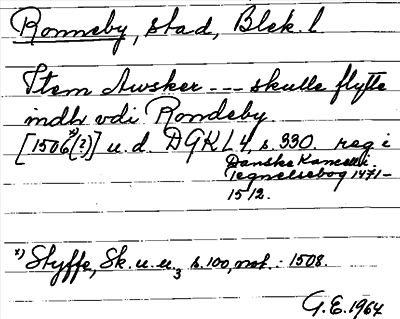 Ronneby, stad, Blek. l
Item Awsker --- skulle flytte
indh vdi Rondeby.
[1506 x) (?)] u.d. DGKL 4, s. 330. reg i
Danske Kancelli.
Tegnelsebog 1471-
1512.
x) Styffe, Sk. u. u.3 s. 100, not. : 1508.
G.E. 1964